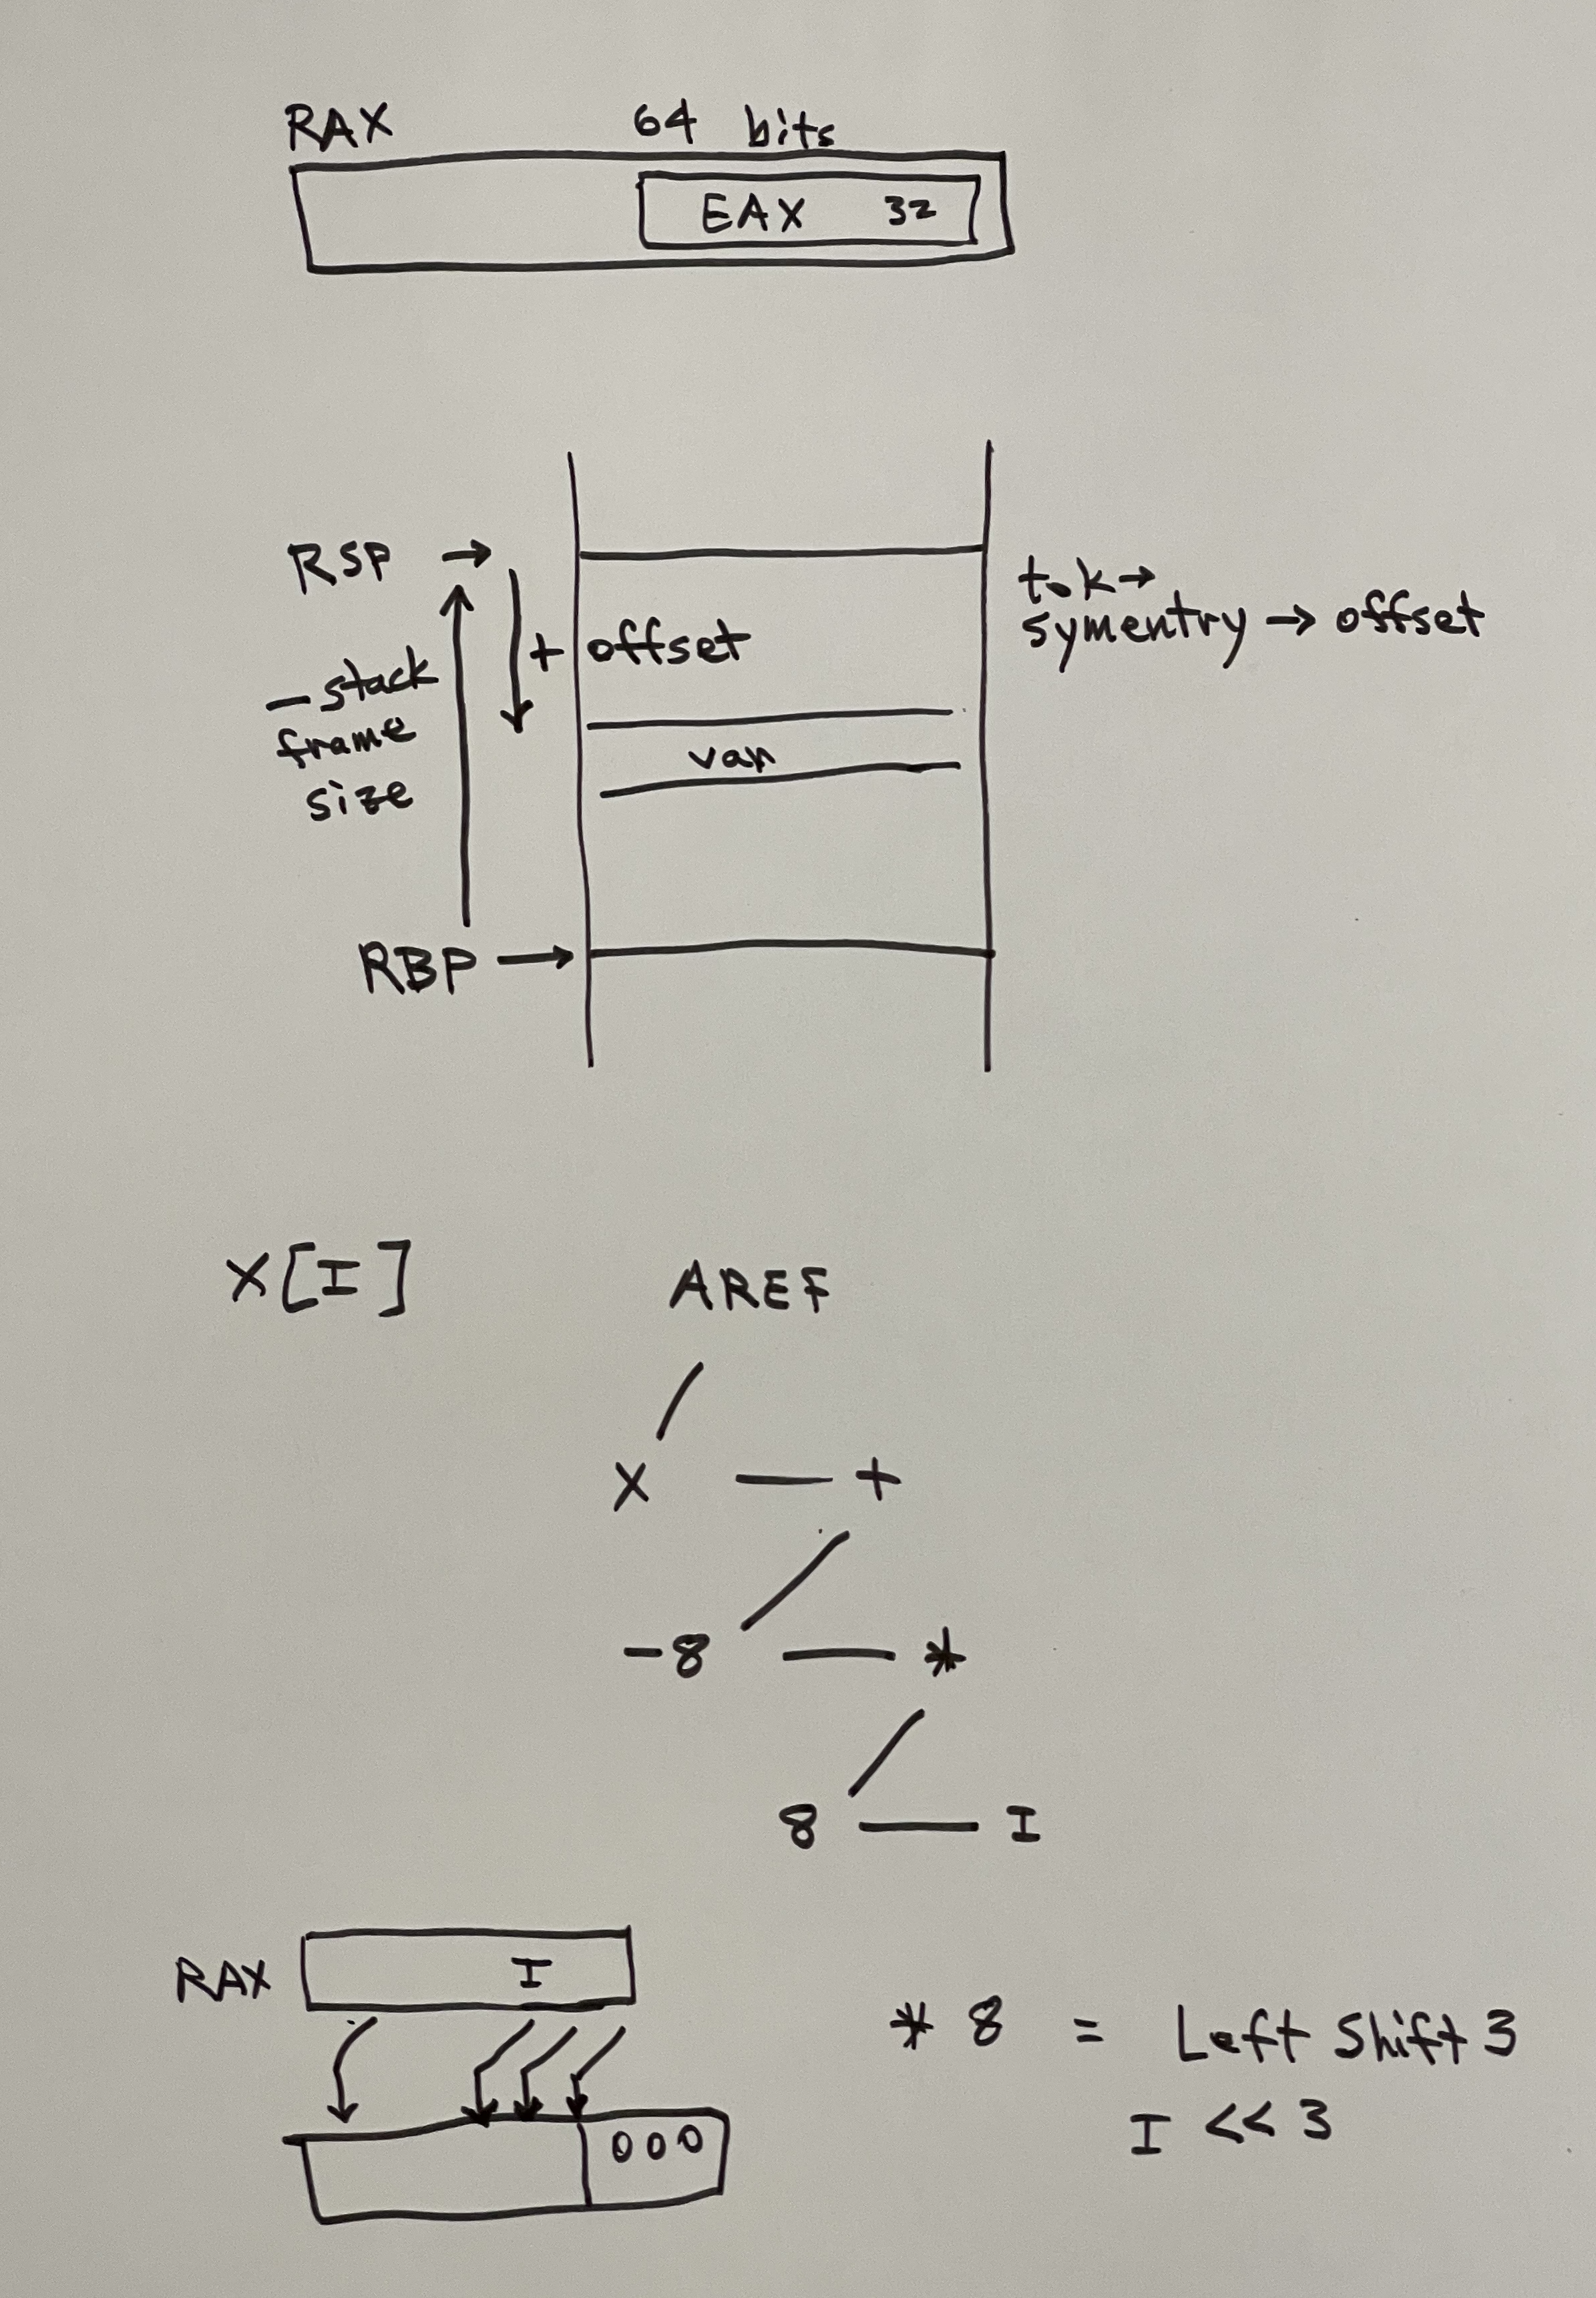 RAX 64 bits
EAX 32
RSP →
tok→
+ offset
symentry → offset
- stack
frame
var
size
RBP →
X[I] AREF
X — +
-8 — *
8 — I
RAX I
* 8 = Left Shift 3
I << 3
000